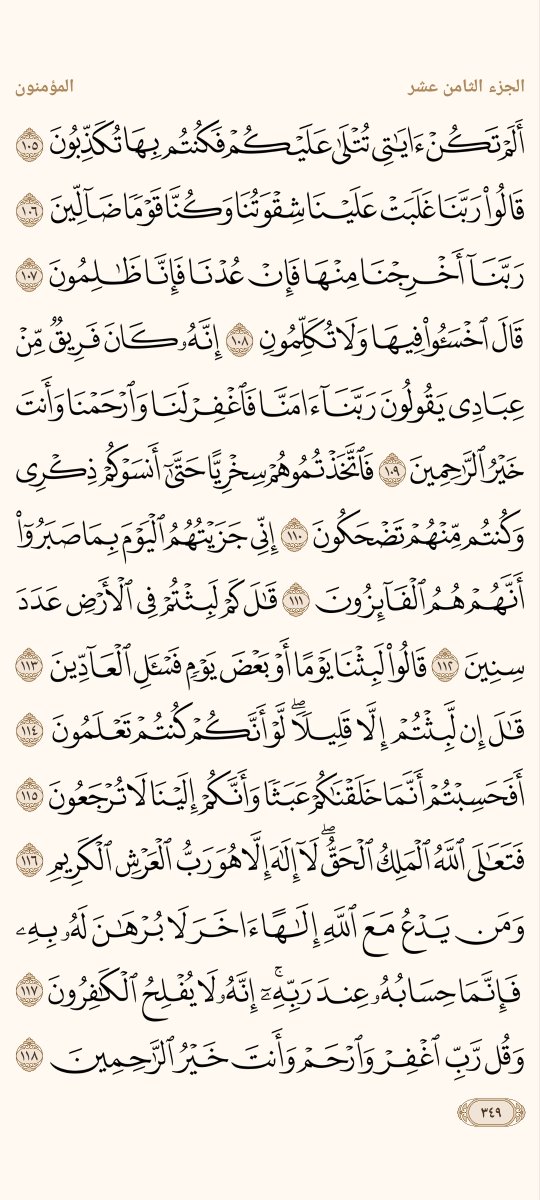 الجزء الثامن عشر
المؤمنون
أَلَمْ تَكُنْ ءَايَٰتِى تُتْلَىٰ عَلَيْكُمْ فَكُنتُم بِهَا تُكَذِّبُونَ ١٠٥
قَالُوا۟ رَبَّنَا غَلَبَتْ عَلَيْنَا شِقْوَتُنَا وَكُنَّا قَوْمًا ضَآلِّينَ ١٠٦
رَبَّنَآ أَخْرِجْنَا مِنْهَا فَإِنْ عُدْنَا فَإِنَّا ظَٰلِمُونَ ١٠٧
قَالَ ٱخْسَـُٔوا۟ فِيهَا وَلَا تُكَلِّمُونِ ١٠٨ إِنَّهُۥ كَانَ فَرِيقٌ مِّنْ
عِبَادِى يَقُولُونَ رَبَّنَآ ءَامَنَّا فَٱغْفِرْ لَنَا وَٱرْحَمْنَا وَأَنتَ
خَيْرُ ٱلرَّٰحِمِينَ ١٠٩ فَٱتَّخَذْتُمُوهُمْ سِخْرِيًّا حَتَّىٰٓ أَنسَوْكُمْ ذِكْرِى
وَكُنتُم مِّنْهُمْ تَضْحَكُونَ ١١٠ إِنِّى جَزَيْتُهُمُ ٱلْيَوْمَ بِمَا صَبَرُوٓا۟
أَنَّهُمْ هُمُ ٱلْفَآئِزُونَ ١١١ قَٰلَ كَمْ لَبِثْتُمْ فِى ٱلْأَرْضِ عَدَدَ
سِنِينَ ١١٢ قَالُوا۟ لَبِثْنَا يَوْمًا أَوْ بَعْضَ يَوْمٍ فَسْـَٔلِ ٱلْعَآدِّينَ ١١٣
قَٰلَ إِن لَّبِثْتُمْ إِلَّا قَلِيلًا ۖ لَّوْ أَنَّكُمْ كُنتُمْ تَعْلَمُونَ ١١٤
أَفَحَسِبْتُمْ أَنَّمَا خَلَقْنَٰكُمْ عَبَثًا وَأَنَّكُمْ إِلَيْنَا لَا تُرْجَعُونَ ١١٥
فَتَعَٰلَى ٱللَّهُ ٱلْمَلِكُ ٱلْحَقُّ ۖ لَآ إِلَٰهَ إِلَّا هُوَ رَبُّ ٱلْعَرْشِ ٱلْكَرِيمِ ١١٦
وَمَن يَدْعُ مَعَ ٱللَّهِ إِلَٰهًا ءَاخَرَ لَا بُرْهَٰنَ لَهُۥ بِهِۦ
فَإِنَّمَا حِسَابُهُۥ عِندَ رَبِّهِۦٓ ۚ إِنَّهُۥ لَا يُفْلِحُ ٱلْكَٰفِرُونَ ١١٧
وَقُل رَّبِّ ٱغْفِرْ وَٱرْحَمْ وَأَنتَ خَيْرُ ٱلرَّٰحِمِينَ ١١٨
٣٤٩